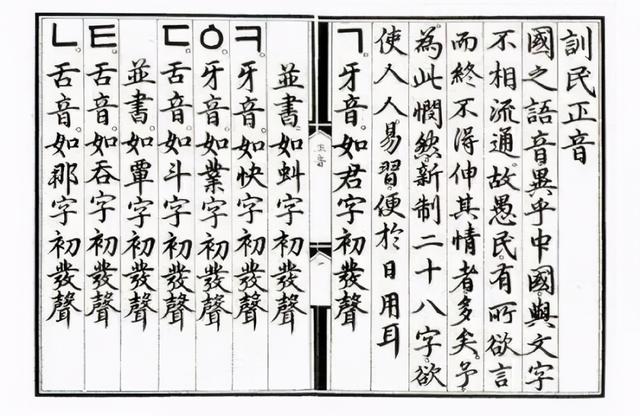 訓民正音
國之語音。異乎中國。與文字
不相流通。故愚民。有所欲言
而終不得伸其情者多矣。予
為此憫然。新制二十八字。欲
使人人易習。便於日用耳
ㄱ。牙音。如君字初發聲
正音
一
並書。如虯字初發聲
ㅋ。牙音。如快字初發聲
ㆁ。牙音。如業字初發聲
ㄷ。舌音。如斗字初發聲
並書。如覃字初發聲
ㅌ。舌音。如呑字初發聲
ㄴ。舌音。如那字初發聲